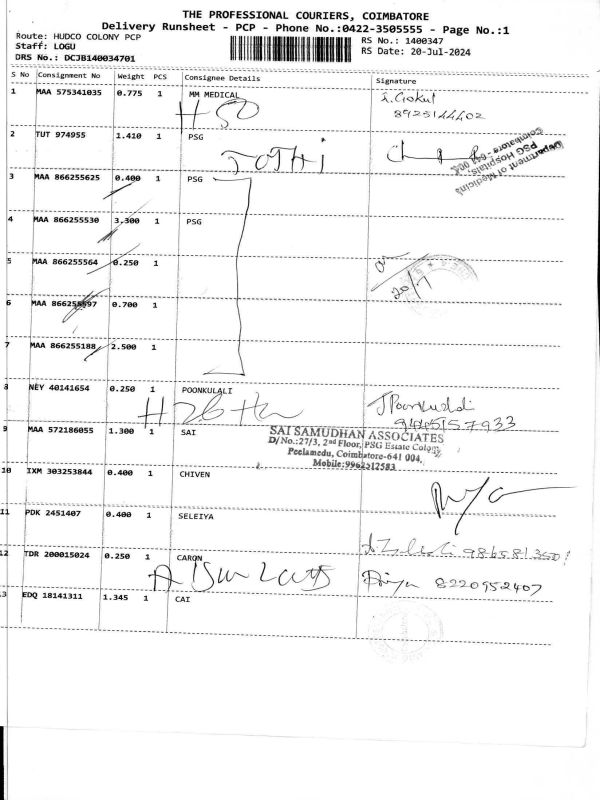 THE PROFESSIONAL COURIERS, COIMBATORE
Delivery Runsheet - PCP - Phone No.:0422-3505555 - Page No.:1
Route: HUDCO COLONY PCP
Staff: LOGU
DRS No.: DCJB140034701
RS No.: 1400347
RS Date: 20-Jul-2024
S No Consignment No Weight PCS Consignee Details Signature
1 MAA 575341035 0.775 1 MM MEDICAL
H 50
8925144402
2 TUT 974955 1.410 1 PSG
JOTHI
Department of Medicine
PSG Hospitals,
Coimbatore - 641 004.
3 MAA 866255625 0.400 1 PSG
4 MAA 866255530 3.300 1 PSG
5 MAA 866255564 0.250 1
20/7
6 MAA 866255597 0.700 1
7 MAA 866255188 2.500 1
8 NEY 40141654 0.250 1 POONKULALI
9445157933
9 MAA 572186055 1.300 1 SAI
SAI SAMUDHAN ASSOCIATES
D/No.:27/3, 2nd Floor, PSG Estate Colony,
Peelamedu, Coimbatore-641 004.
Mobile:9962512583
10 IXM 303253844 0.400 1 CHIVEN
11 PDK 2451407 0.400 1 SELEIYA
12 TDR 200015024 0.250 1 CARON
Priya 8220952407
13 EDQ 18141311 1.345 1 CAI